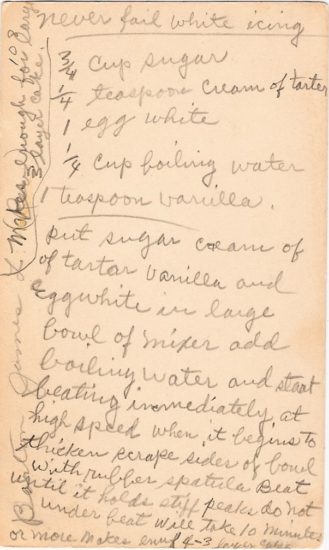 never fail white icing
3/4 cup sugar
1/4 teaspoon cream of tarter
1 egg white
1/4 cup boiling water
1 teaspoon vanilla.
put sugar cream of
of tartar vanilla and
eggwhite in large
bowl of mixer add
boiling water and start
beating immediately at
high speed when it begins to
thicken scrape sides of bowl
with rubber spatula Beat
until it holds stiff peaks do not
under beat will take 10 minutes
or more makes 4-3 layer cakes
Makes enough for
3 layer cake.
James L.